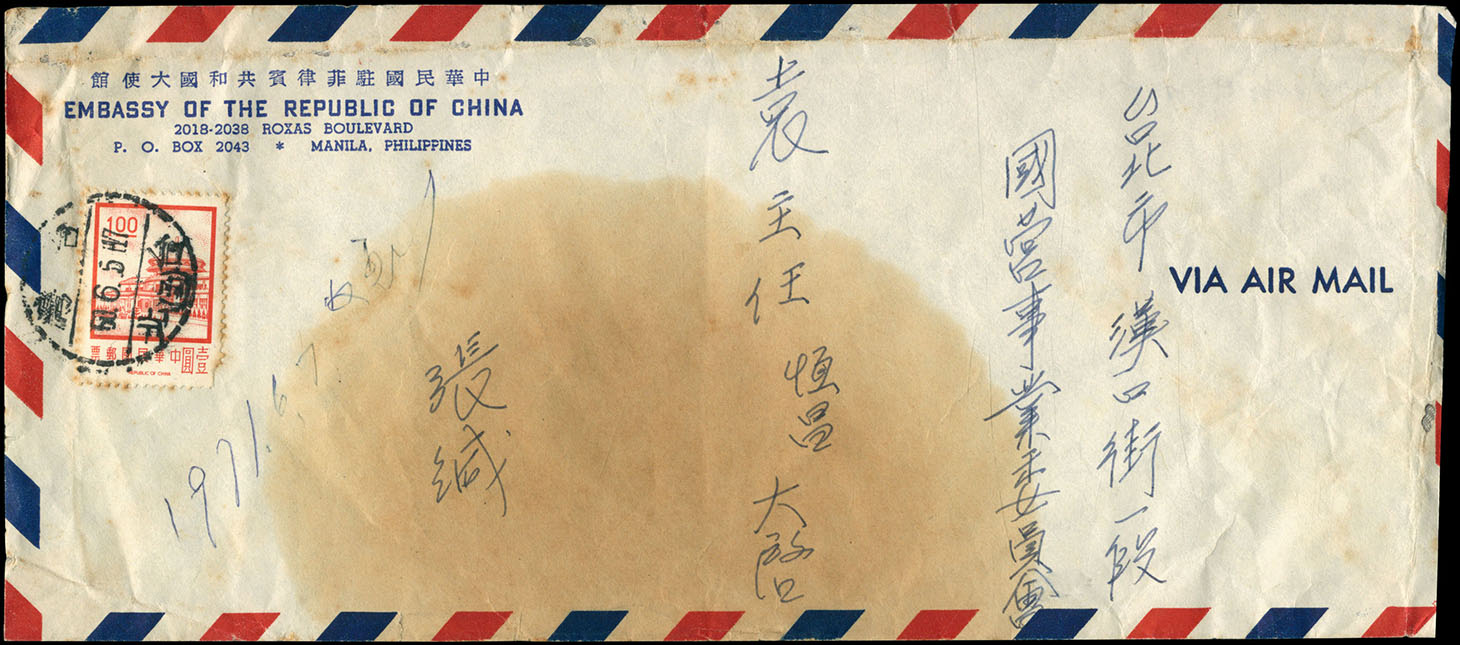 館使大國和共賓律菲駐國民華中
EMBASSY OF THE REPUBLIC OF CHINA
2018-2038 ROXAS BOULEVARD
P. O. BOX 2043 * MANILA, PHILIPPINES
VIA AIR MAIL
漢口街一段
國營事業委員會
袁主任恒昌大啓
張緘
1971.6.7.
1.00
票郵國民華中
壹圓
REPUBLIC OF CHINA
60.6.5
台北